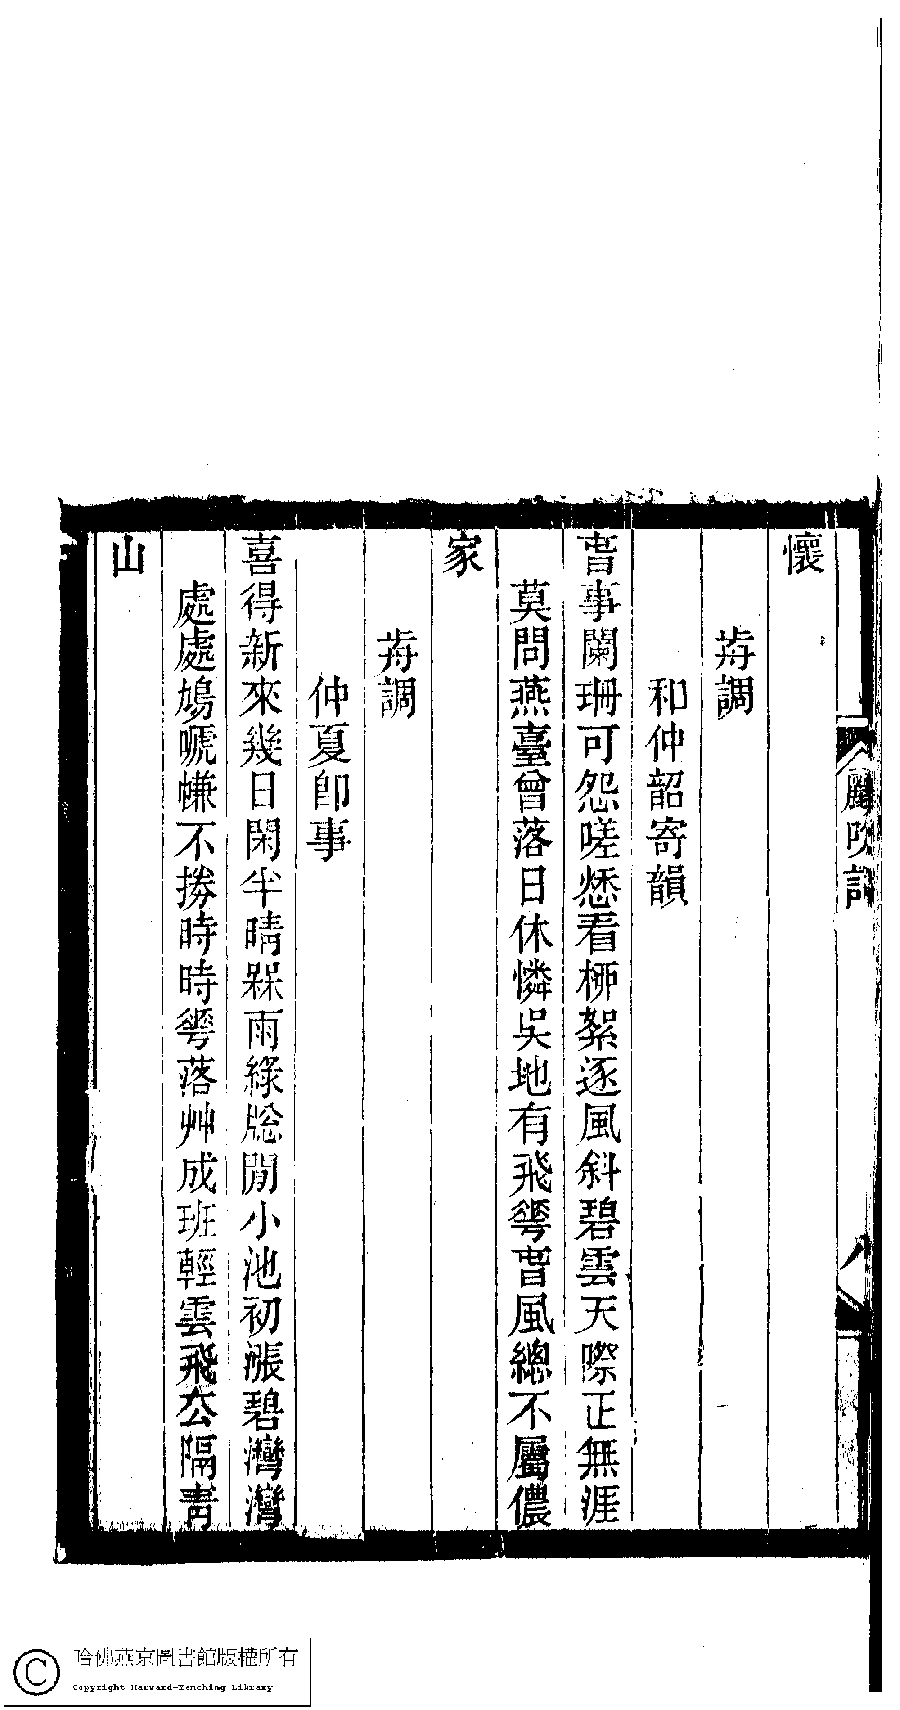 懷
歬調
和仲韶寄韻
旾事闌珊可怨嗟愁看桺絮逐風斜碧雲天際正無涯
莫問燕臺曾落日休憐吳地有飛𠌶旾風總不屬儂
家
歬調
仲夏卽事
喜得新來幾日閑半晴槑雨綠窓閒小池初漲碧灣灣
處處鳩嗁慊不捲時時𠌶落艸成班輕雲飛厺隔靑
山
鸝吹詞
八
哈佛燕京圖書館版權所有
Copyright Harvard-Yenching Library